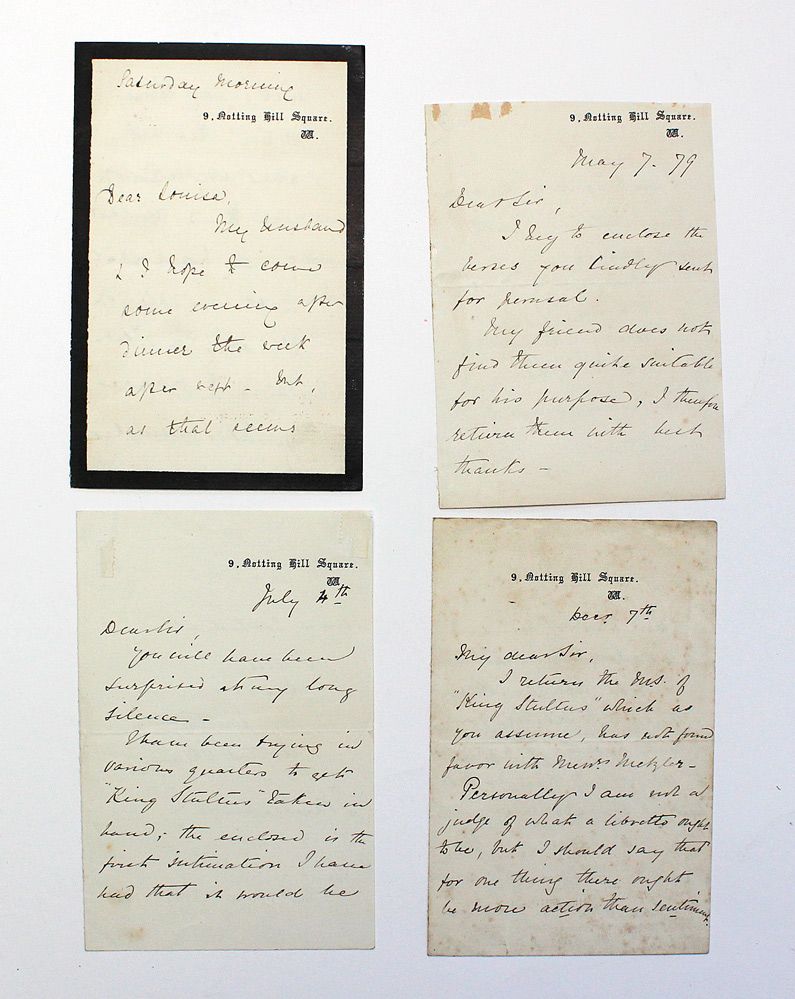 Saturday Morning
9, Notting Hill Square.
W.
Dear Louisa,
My Husband
& I hope to come
some evening after
dinner the week
after next - but,
as that seems
9, Notting Hill Square.
W.
May 7. 79
Dear Sir,
I beg to enclose the
verses you kindly sent
for perusal.
My friend does not
find them quite suitable
for his purpose, I therefore
return them with best
thanks -
9, Notting Hill Square.
W.
July 4th
Dear Sir,
You will have been
surprised at my long
silence -
I have been trying in
various quarters to get
"King Stultus" taken in
hand; the enclosed is the
first intimation I have
had that it would be
9, Notting Hill Square.
W.
Decr 7th
My dear Sir,
I return the Ms. of
"King Stultus" which as
you assume, has not found
favor with Messrs Metzler -
Personally I am not a
judge of what a libretto ought
to be, but I should say that
for one thing there ought
be more action than sentiment.